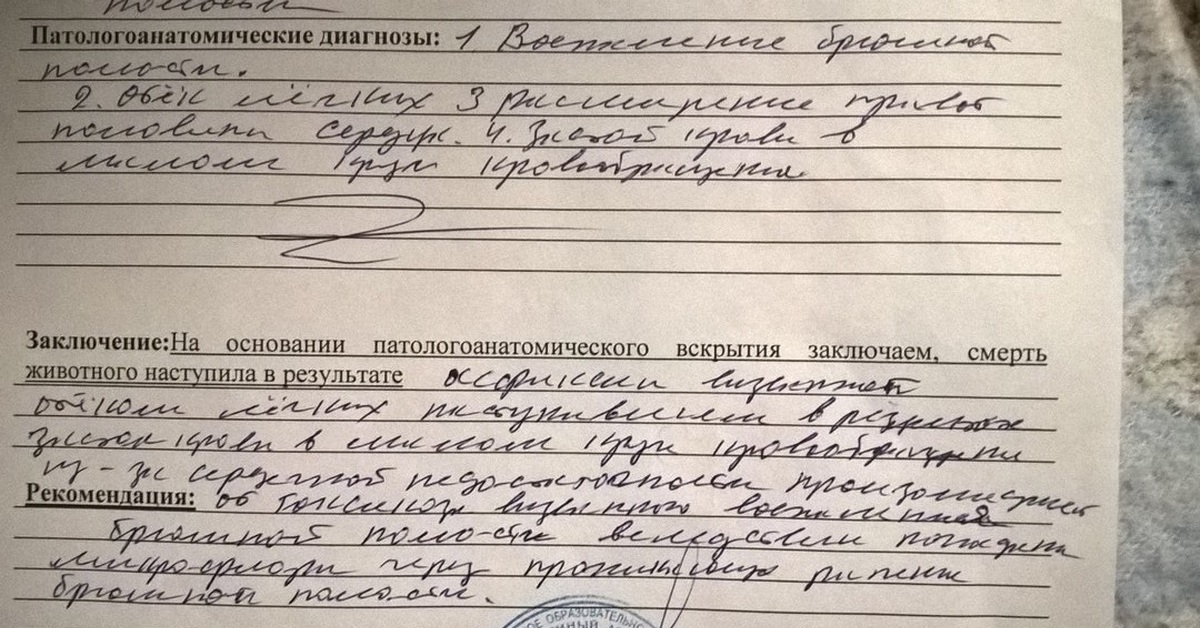 полости
Патологоанатомические диагнозы: 1 Воспаление брюшной
полости.
2. Отёк лёгких 3 расширение правой
половины сердца. 4. Застой крови в
малом круге кровообращения
Заключение: На основании патологоанатомического вскрытия заключаем, смерть
животного наступила в результате асфиксии вызванной
отёком лёгких наступившем в результате
застоя крови в малом круге кровообращения
из-за сердечной недостаточности произошедшей
Рекомендация: от токсикоза вызванного воспалением
брюшной полости вследствии попадания
микрофлоры через проникающие ранение
брюшной полости.
ОЕ ОБРАЗОВАТЕЛЬНО